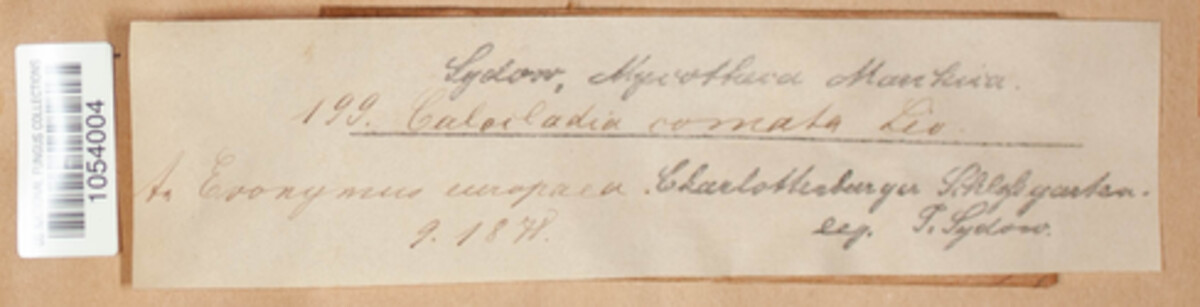 Sydow, Mycotheca Marchica.
199. Calocladia comata Lév.
A. Evonymus europaea. Charlottenburger Schloßgarten.
9. 1878.
leg. P. Sydow.
FUNGUS COLLECTIONS
1054004